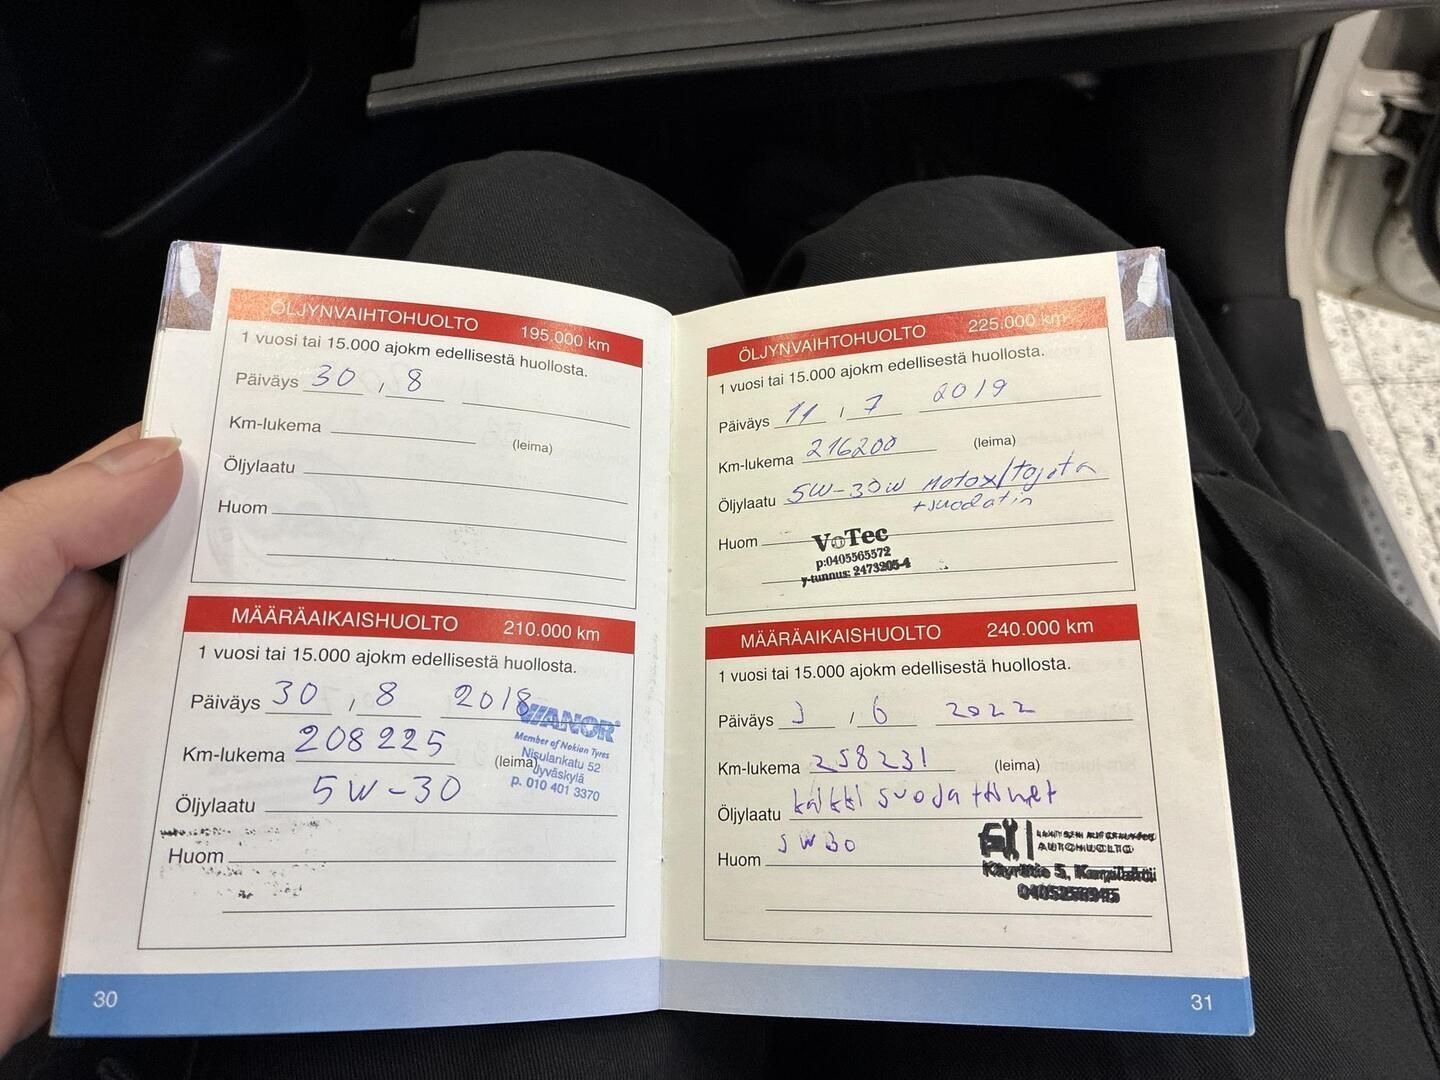 ÖLJYNVAIHTOHUOLTO 195.000 km
1 vuosi tai 15.000 ajokm edellisestä huollosta.
Päiväys 30 , 8
Km-lukema
(leima)
Öljylaatu
Huom
MÄÄRÄAIKAISHUOLTO 210.000 km
1 vuosi tai 15.000 ajokm edellisestä huollosta.
Päiväys 30 , 8 2018
VIANOR
Member of Nokian Tyres
Nisulankatu 52
Jyväskylä
p. 010 401 3370
Km-lukema 208225
(leima)
Öljylaatu 5W-30
Huom
30
ÖLJYNVAIHTOHUOLTO 225.000 km
1 vuosi tai 15.000 ajokm edellisestä huollosta.
Päiväys 11 / 7 2019
Km-lukema 216200 (leima)
Öljylaatu 5W-30W Motox/Toyota
+suodatin
Huom
VoTec
p:0405565572
y-tunnus: 2473205-4
MÄÄRÄAIKAISHUOLTO 240.000 km
1 vuosi tai 15.000 ajokm edellisestä huollosta.
Päiväys / 6 2022
Km-lukema 258231 (leima)
Öljylaatu kaikki suodattimet
Huom 5W30
AUTOHUOLTO
Käyrätie 5,
31